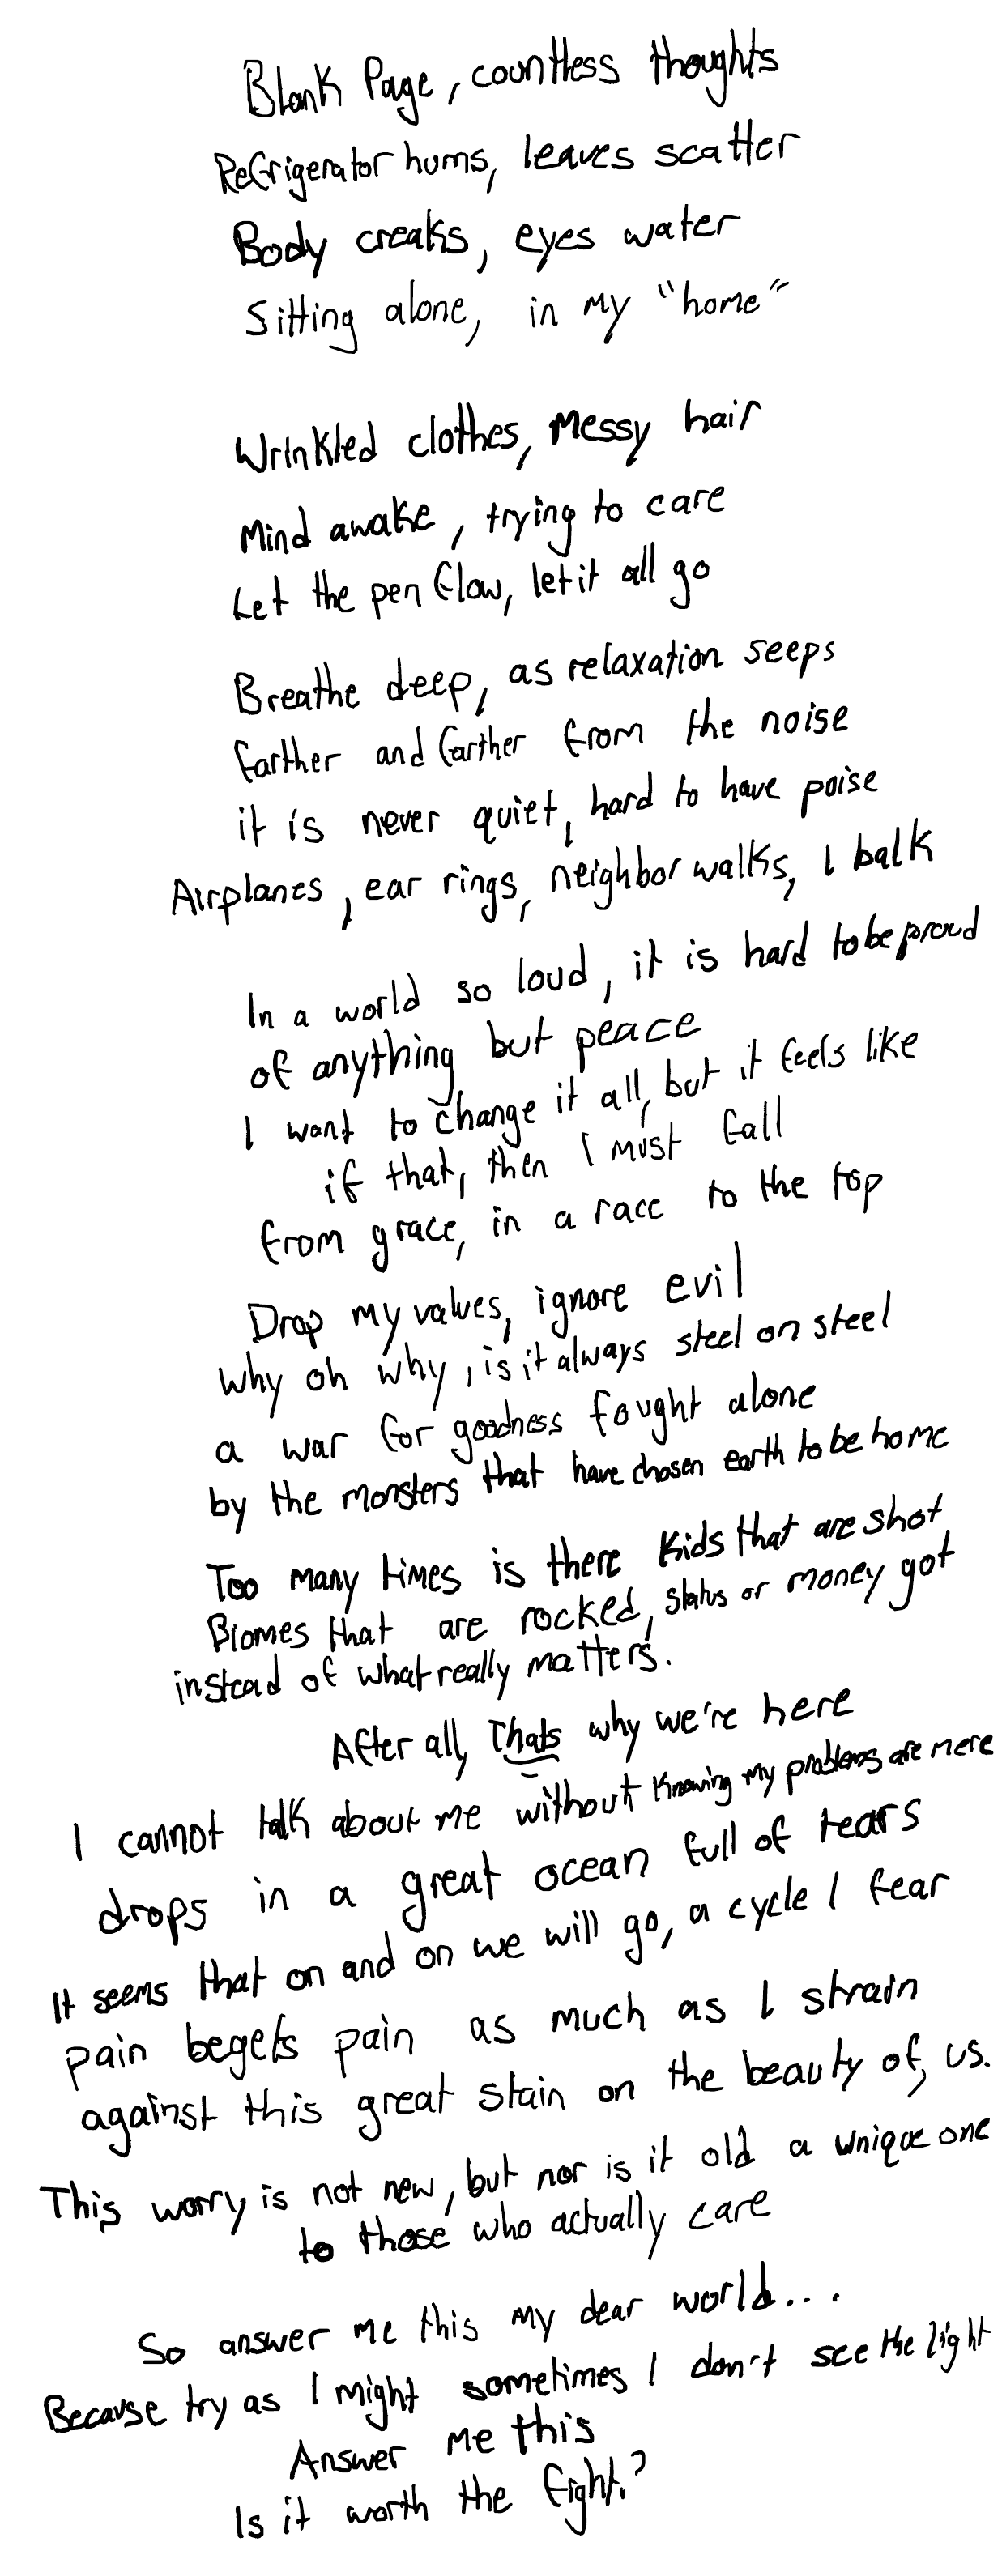 Blank Page, countless thoughts
Refrigerator hums, leaves scatter
Body creaks, eyes water
Sitting alone, in my "home"
Wrinkled clothes, Messy hair
Mind awake, trying to care
Let the pen flow, let it all go
Breathe deep, as relaxation seeps
farther and farther from the noise
it is never quiet, hard to have poise
Airplanes, ear rings, neighbor walks, I balk
In a world so loud, it is hard to be proud
of anything but peace
I want to change it all, but it feels like
if that, then I must fall
from grace, in a race to the top
Drop my values, ignore evil
why oh why, is it always steel on steel
a war for goodness fought alone
by the monsters that have chosen earth to be home
Too many times is there kids that are shot
Biomes that are rocked, status or money got
instead of what really matters.
After all, Thats why we're here
I cannot talk about me without knowing my problems are mere
drops in a great ocean full of tears
It seems that on and on we will go, a cycle I fear
pain begets pain as much as I strain
against this great stain on the beauty of, us.
This worry is not new, but nor is it old a unique one
to those who actually care
So answer me this my dear world...
Because try as I might sometimes I don't see the light
Answer me this
Is it worth the fight?